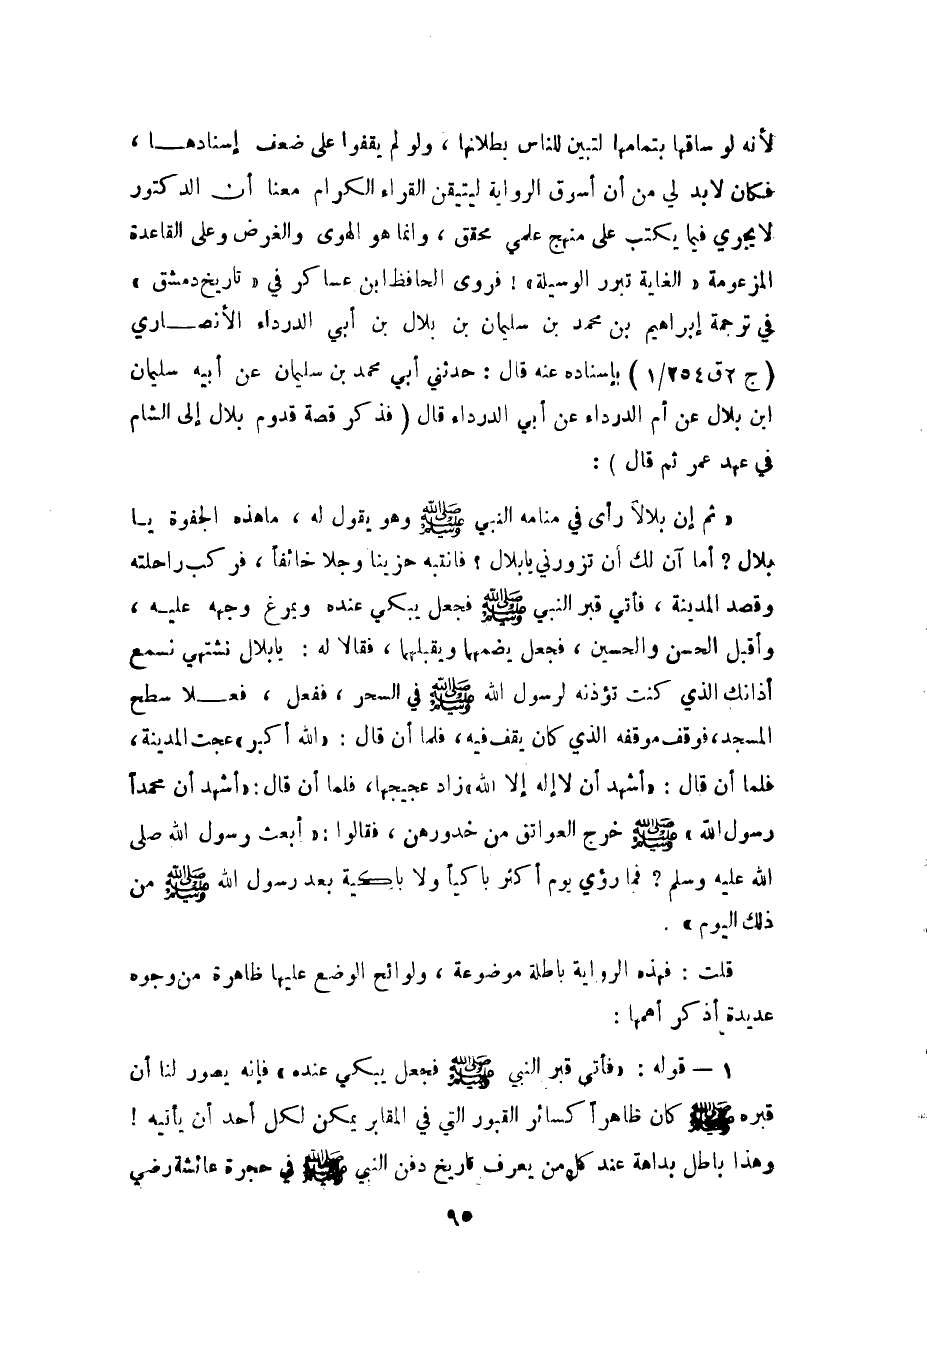 لأنه لو ساقها بتمامها لتبين للناس بطلانها ، ولو لم يقفوا على ضعف إسنادهـــا ،
فكان لابد لي من أن أسوق الرواية ليتيقن القراء الكرام معنا أن الدكتور
لايجري فيما يكتب على منهج علمي محقق ، وانما هو الهوى والغرض وعلى القاعدة
المزعومة « الغاية تبرر الوسيلة» ! فروى الحافظ ابن عساكر في « تاريخ دمشق »
في ترجمة إبراهيم بن محمد بن سليمان بن بلال بن أبي الدرداء الأنصـــاري
( ج ٢ ق ٢٥٤/١ ) بإسناده عنه قال : حدثني أبي محمد بن سليمان عن أبيه سليمان
ابن بلال عن أم الدرداء عن أبي الدرداء قال ( فذكر قصة قدوم بلال إلى الشام
في عهد عمر ثم قال ) :
« ثم إن بلالاً رأى في منامه النبي ﷺ وهو يقول له ، ماهذه الجفوة يــا
بلال ? أما آن لك أن تزورني يابلال ؟ فانتبه حزينا وجلا خائفاً ، فركب راحلته
وقصد المدينة ، فأتي قبر النبي ﷺ فجعل يبكي عنده ويمرغ وجهه عليــه ،
وأقبل الحسن والحسين ، فجعل يضمها ويقبلها ، فقالا له : يابلال نشتهي نسمع
أذانك الذي كنت تؤذنه لرسول الله ﷺ في السحر ، ففعل ، فعـــلا سطح
المسجد، فوقف موقفه الذي كان يقف فيه، فلما أن قال : «الله أكبر» عجت المدينة،
فلما أن قال : «أشهد أن لاإله إلا الله» زاد عجيجها، فلما أن قال: «أشهد أن محمداً
رسول الله » ﷺ خرج العواتق من خدورهن ، فقالوا : « أبعث رسول الله صلى
الله عليه وسلم ? فما رؤي يوم أكثر باكياً ولا باكية بعد رسول الله ﷺ من
ذلك اليوم » .
قلت : فهذه الرواية باطلة موضوعة ، ولوائح الوضع عليها ظاهرة من وجوه
عديدة أذكر أهمها :
١ — قوله : «فأتي قبر النبي ﷺ فجعل يبكي عنده» فإنه يصور لنا أن
قبره ﷺ كان ظاهراً كسائر القبور التي في المقابر يمكن لكل أحد أن يأتيه !
وهذا باطل بداهة عند كل من يعرف تاريخ دفن النبي ﷺ في حجرة عائشة رضي
٩٥